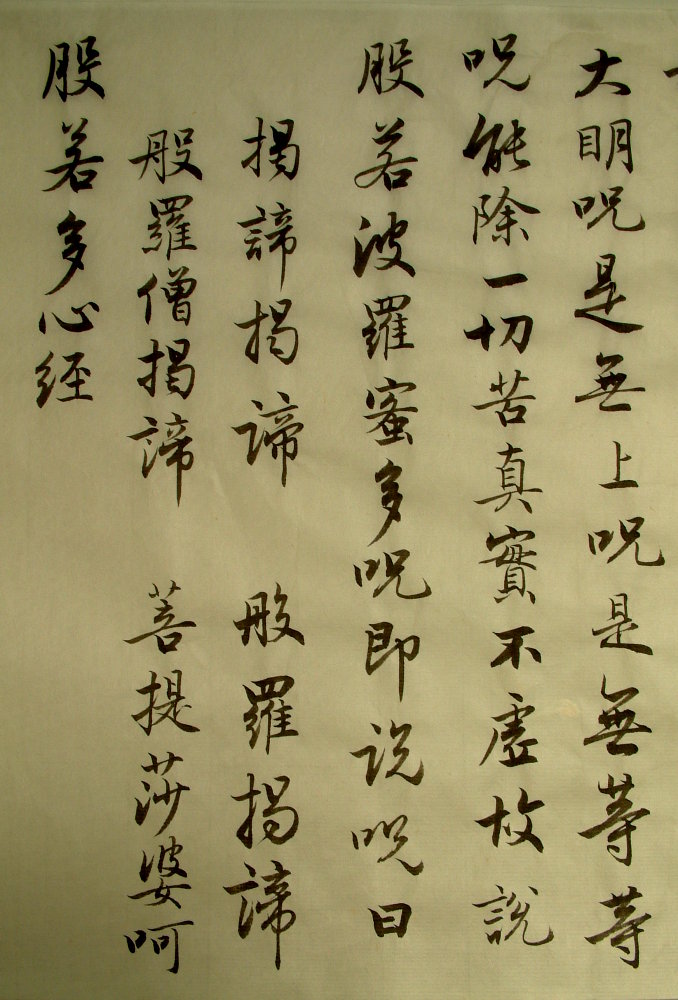 大明呪是無上呪是無等等
呪能除一切苦真實不虛故說
般若波羅蜜多呪即说呪曰
揭諦揭諦 般羅揭諦
般羅僧揭諦 菩提莎婆呵
般若多心経